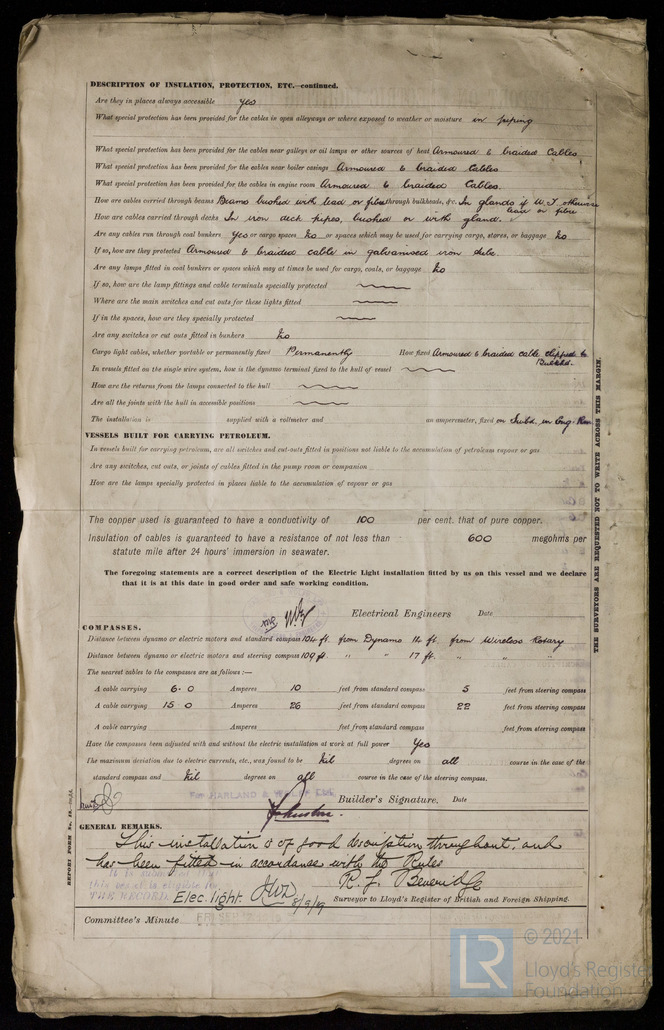 DESCRIPTION OF INSULATION, PROTECTION, ETC.—continued.
Are they in places always accessible yes
What special protection has been provided for the cables in open alleyways or where exposed to weather or moisture in piping
What special protection has been provided for the cables near galleys or oil lamps or other sources of heat Armoured & braided Cables
What special protection has been provided for the cables near boiler casings Armoured & braided Cables
What special protection has been provided for the cables in engine room Armoured & braided Cables.
How are cables carried through beams Beams bushed with lead or fibre through bulkheads, &c. In glands if W.T. otherwise
lead or fibre
How are cables carried through decks In iron deck pipes, bushed or with gland.
Are any cables run through coal bunkers Yes or cargo spaces No or spaces which may be used for carrying cargo, stores, or baggage No
If so, how are they protected Armoured & braided cable in galvanised iron tube.
Are any lamps fitted in coal bunkers or spaces which may at times be used for cargo, coals, or baggage No
If so, how are the lamp fittings and cable terminals specially protected
Where are the main switches and cut outs for these lights fitted
If in the spaces, how are they specially protected
Are any switches or cut outs fitted in bunkers No
Cargo light cables, whether portable or permanently fixed Permanently How fixed Armoured & braided cable clipped to
In vessels fitted on the single wire system, how is the dynamo terminal fixed to the hull of vessel
How are the returns from the lamps connected to the hull
Are all the joints with the hull in accessible positions
The installation is supplied with a voltmeter and an amperemeter, fixed on Swbd. in Eng. Rm
VESSELS BUILT FOR CARRYING PETROLEUM.
In vessels built for carrying petroleum, are all switches and cut-outs fitted in positions not liable to the accumulation of petroleum vapour or gas
Are any switches, cut outs, or joints of cables fitted in the pump room or companion
How are the lamps specially protected in places liable to the accumulation of vapour or gas
The copper used is guaranteed to have a conductivity of 100 per cent. that of pure copper.
Insulation of cables is guaranteed to have a resistance of not less than 600 megohms per
statute mile after 24 hours' immersion in seawater.
The foregoing statements are a correct description of the Electric Light installation fitted by us on this vessel and we declare
that it is at this date in good order and safe working condition.
Electrical Engineers Date
COMPASSES.
Distance between dynamo or electric motors and standard compass 104 ft. from Dynamo 14 ft. from Wireless Rotary
Distance between dynamo or electric motors and steering compass 109 ft. " " 17 ft. " " "
The nearest cables to the compasses are as follows :—
A cable carrying 6.0 Amperes 10 feet from standard compass 5 feet from steering compass
A cable carrying 15.0 Amperes 26 feet from standard compass 22 feet from steering compass
A cable carrying Amperes feet from standard compass feet from steering compass
Have the compasses been adjusted with and without the electric installation at work at full power Yes
The maximum deviation due to electric currents, etc., was found to be Nil degrees on all course in the case of the
standard compass and Nil degrees on all course in the case of the steering compass.
For HARLAND & WOLFF LTD.
Builder's Signature. Date
GENERAL REMARKS.
This installation is of good description throughout, and
has been fitted in accordance with the Rules
THE RECORD. Elec. light. 8/9/19
R. J. Beveridge
Surveyor to Lloyd's Register of British and Foreign Shipping.
Committee's Minute
THE SURVEYORS ARE REQUESTED NOT TO WRITE ACROSS THIS MARGIN.
REPORT FORM No. 13.
LR
© 2021
Lloyd's Register
Foundation